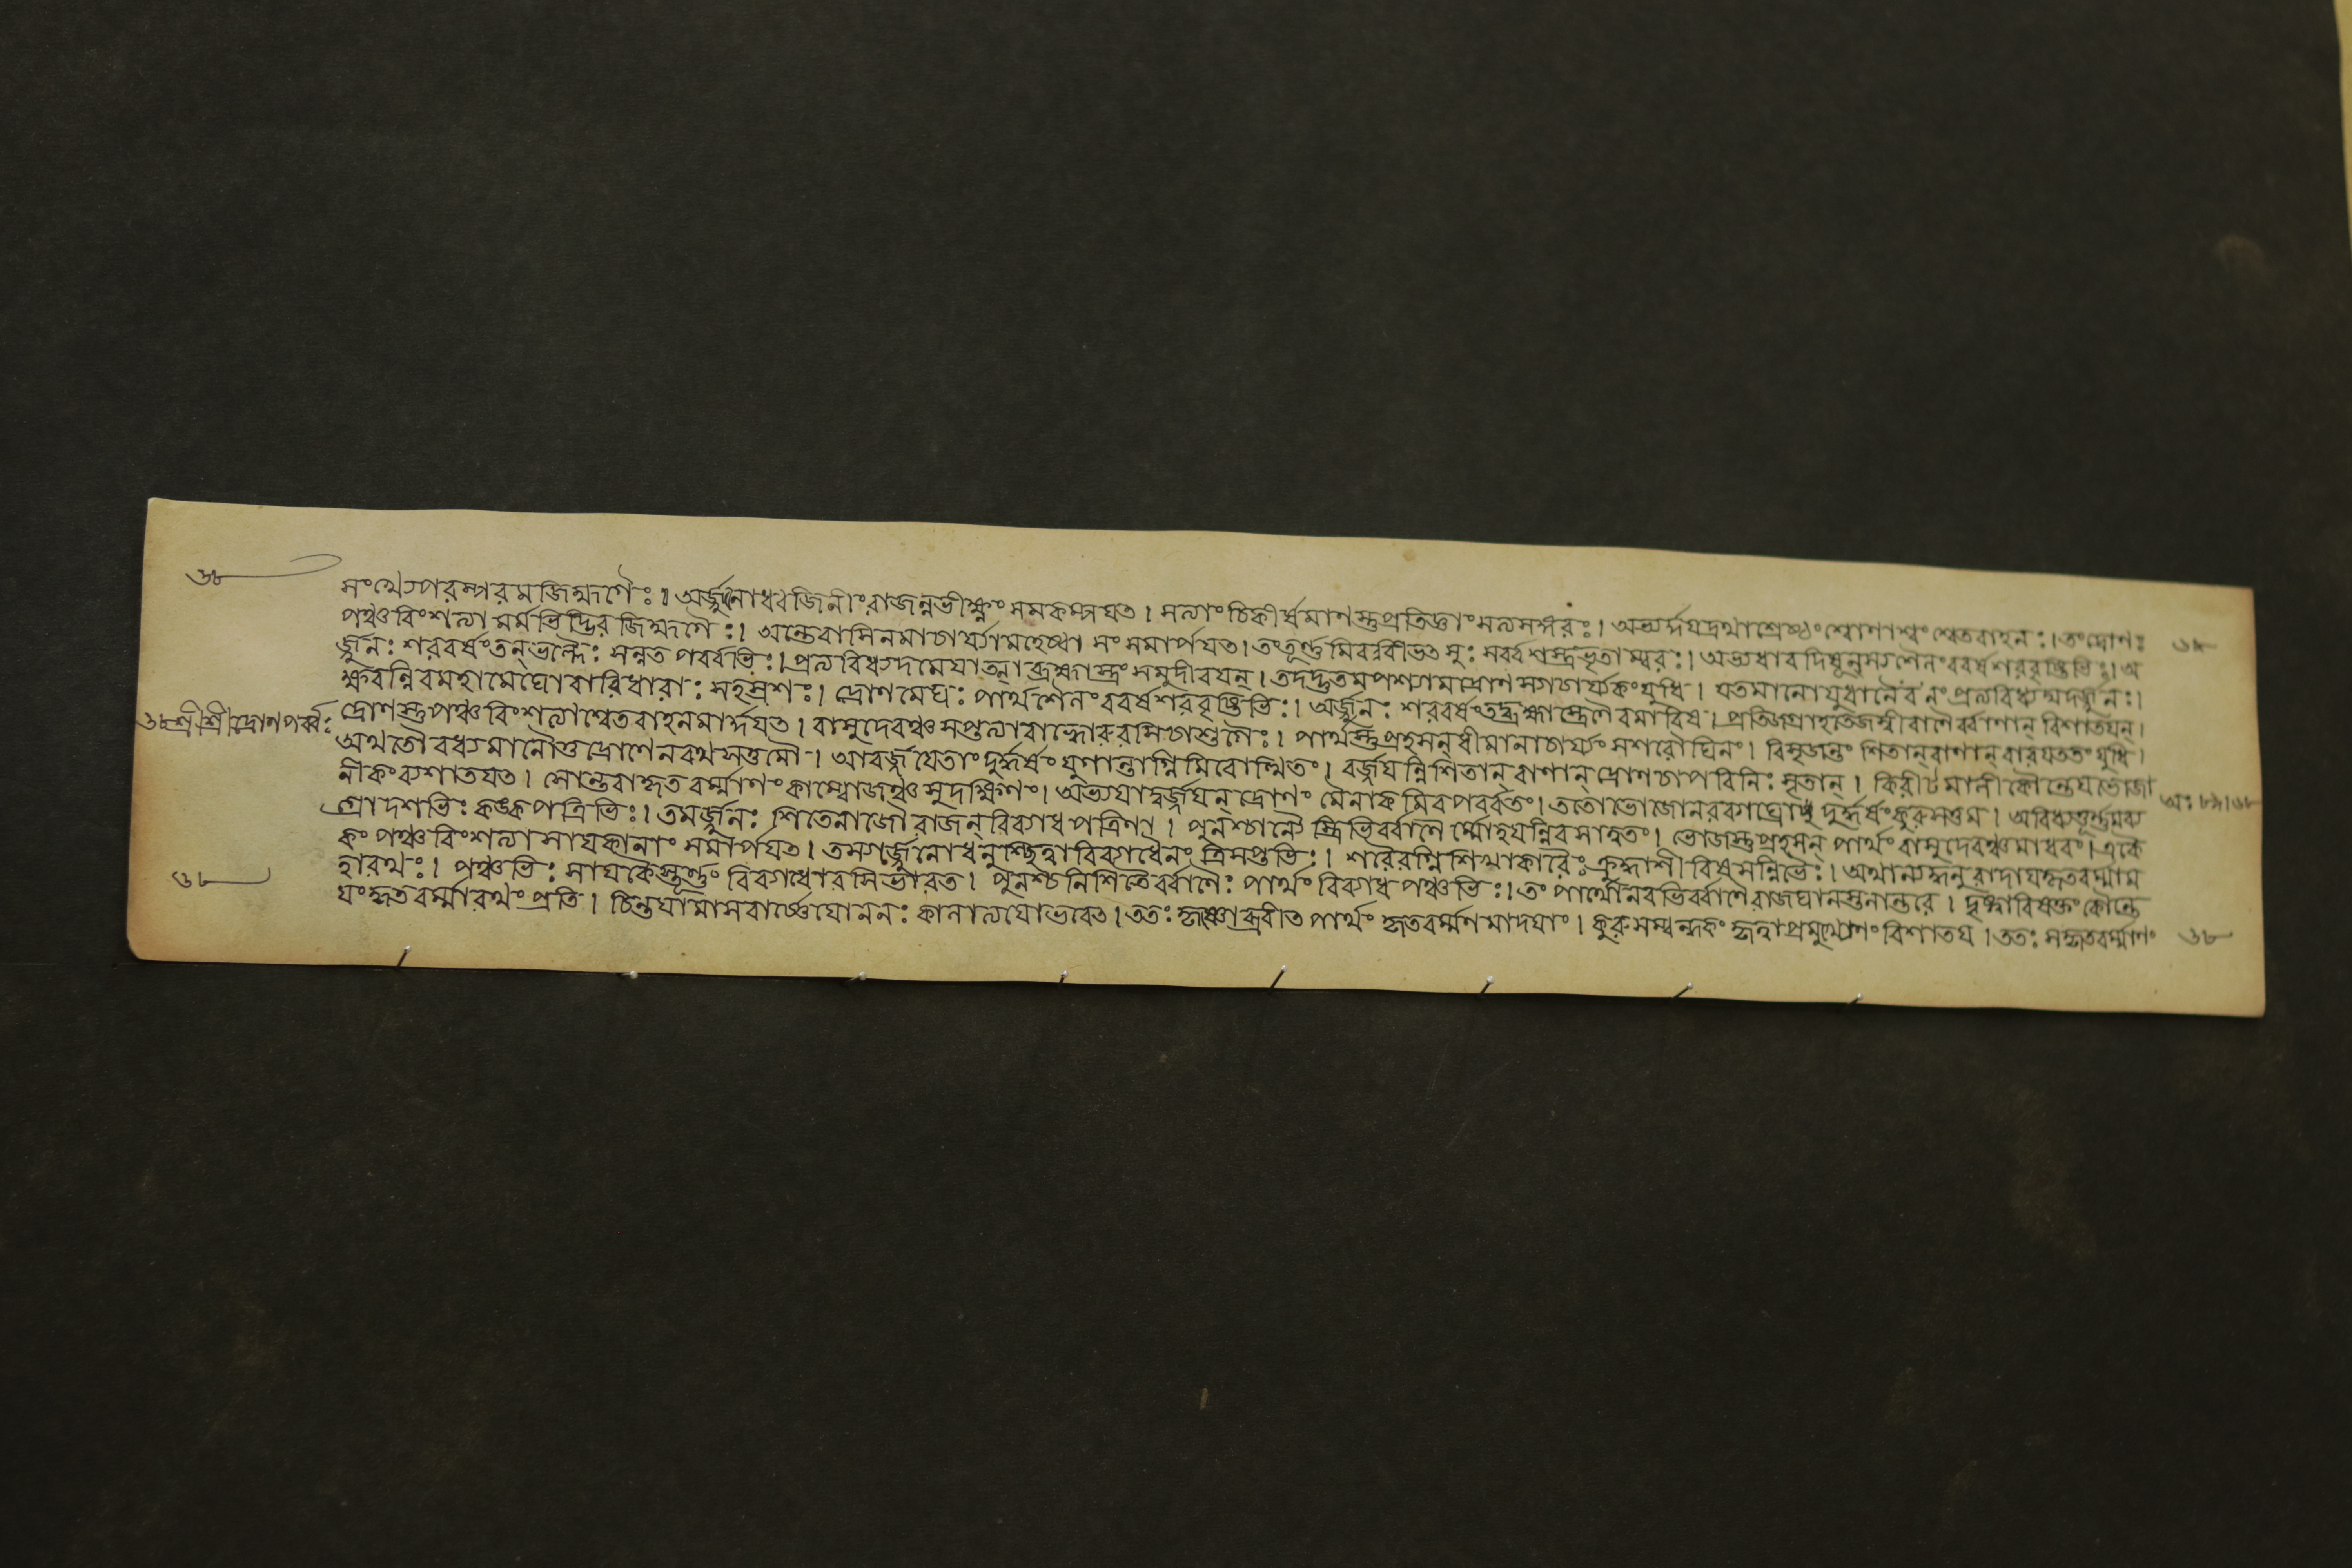 ৬৮
সংখ্যে পরস্পরমজিহ্মগৈঃ। অর্জ্জুনোধ্বজিনীং রাজন্নভীক্ষ্ণং সমকম্পয়ত। সত্যাং চিকীর্ষমাণস্তুপ্রতিজ্ঞাং সত্যসঙ্গরঃ। অভ্যর্দ্দয়দ্রথশ্রেষ্ঠং শোণাশ্বং শ্বেতবাহনঃ। তংদ্রোণঃ ৬৮
পঞ্চবিংশত্যা মর্মভিদ্ভিরজিহ্মগৈঃ। অন্তেবাসিনমাচার্য্যোমহেষ্বাসং সমার্পয়ত। তংতূর্ণমিববীভত্সুঃ সর্ব্বশস্ত্রভৃতাম্বরঃ। অভ্যধাবদিষূনস্যন্ শৈনং ববর্ষশরবৃষ্টিভিঃ। অ
র্জ্জুনঃ শরবর্ষং তন্ ভল্লৈঃ সন্নতপর্ব্বভিঃ। প্রত্যবিধ্যদমেয়াত্মা ব্রহ্মাস্ত্রং সমুদীরয়ন্। তদদ্ভুতমপশ্যামদ্রোণস্যাচার্য্যকং যুধি। যতমানোযুবানৈবনং প্রত্যবিধ্যদ্যদর্জ্জুনঃ।
ক্ষরন্নিবমহামেঘোবারিধারাঃ সহস্রশঃ। দ্রোণমেঘঃ পার্থশৈনং ববর্ষশরবৃষ্টিভিঃ। অর্জ্জুনঃ শরবর্ষং তদ্ব্রহ্মাস্ত্রেণৈবমারিষ। প্রতিজগ্রাহতেজস্বীবাণৈর্ব্বাণান্ বিশাতয়ন্।
৬৮শ্রীশ্রীদ্রোণপর্ব্বঃ দ্রোণস্তুপঞ্চবিংশত্যাশ্বেতবাহনমার্দ্দয়ত। বাসুদেবঞ্চ সপ্তত্যাবাহ্বোরুরসিচাশুগৈঃ। পার্থস্তুপ্রহসন্ ধীমানাচার্য্যং সশরৌঘিনং। বিসৃজন্তং শিতান্ বাণান্ বারয়ততংযুধি।
অথতৌ বধ্যমানৌতুদ্রোণেনরথসত্তমৌ। আবর্জ্জয়েতাং দুর্দ্ধর্ষং যুগান্তাগ্নিমিবোত্থিতং। বর্জ্জয়ন্নিশিতান্ বাণান্ দ্রোণচাপবিনিঃসৃতান্। কিরীটমালী কৌন্তেয়ভোজা
নীকং ব্যশাতয়ত। সোন্তরাকৃতবর্ম্মাণং কাম্বোজঞ্চসুদক্ষিণং। অভ্যয়াদ্বর্জ্জয়ন্ দ্রোণং মৈনাকমিবপর্ব্বতং। ততোভোজোনরব্যাঘ্রোদুর্দ্ধর্ষংকুরুসত্তম। অবিধ্যত্তূর্ণমব্য অঃ
গ্রোদশভিঃ কঙ্কপত্রিভিঃ। তমর্জ্জুনঃ শিতেনাজৌ রাজন্ বিব্যাধপত্রিণা। পুনশ্চান্যৈস্ত্রিভির্ব্বাণৈর্ম্মোহয়ন্নিবসাত্বতং। ভোজস্তুপ্রহসন্ পার্থং বাসুদেবঞ্চমাধবং। একৈ
কং পঞ্চবিংশত্যা সায়কানাং সমার্পয়ত। তস্যার্জ্জুনোধনুশ্ছিত্বা বিব্যাধৈনং ত্রিসপ্ততিঃ। শরৈরগ্নিশিখাকারৈঃ ক্রুদ্ধাশীবিষসন্নিভৈঃ। অথান্যদ্ধনুরাদায়কৃতবর্ম্মাম
হারথঃ। পঞ্চভিঃ সায়কৈস্তূর্ণং বিব্যাধোরসিভারত। পুনশ্চনিশিতৈর্ব্বাণৈঃ পার্থং বিব্যাধপঞ্চভিঃ। তং পার্থোনবভির্ব্বাণৈরাজঘানস্তনান্তরে। দৃষ্ট্বাবিষক্তং কৌন্তে
৬৮ য়ং কৃতবর্ম্মারথং প্রতি। চিন্তয়ামাসবার্ষ্ণেয়োননঃ কালাত্যয়োভবেত। ততঃ কৃষ্ণোব্রবীত পার্থং কৃতবর্ম্মণিমাদয়াং। কুরুসম্বন্ধকং কৃত্বাপ্রমথ্যৈণং বিশাতয়। ততঃ সকৃতবর্ম্মাণং ৬৮